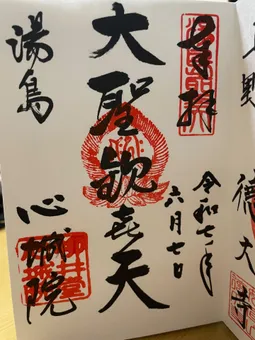 野
徳大寺
奉拝
令和七年
六月七日
大聖歓喜天
湯島
心城院